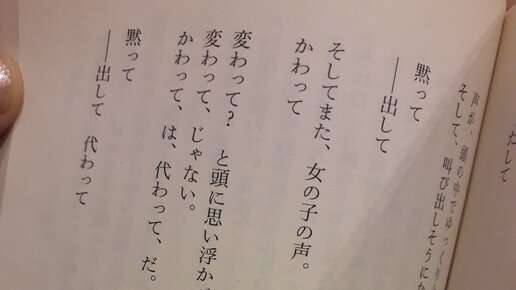 だして
声が、頭の中でゆっくり
そして、叫び出しそうにな
黙って
――出して
そしてまた、女の子の声。
かわって
変わって？　と頭に思い浮かが
変わって、じゃない。
かわって、は、代わって、だ。
黙って
――出して　代わって